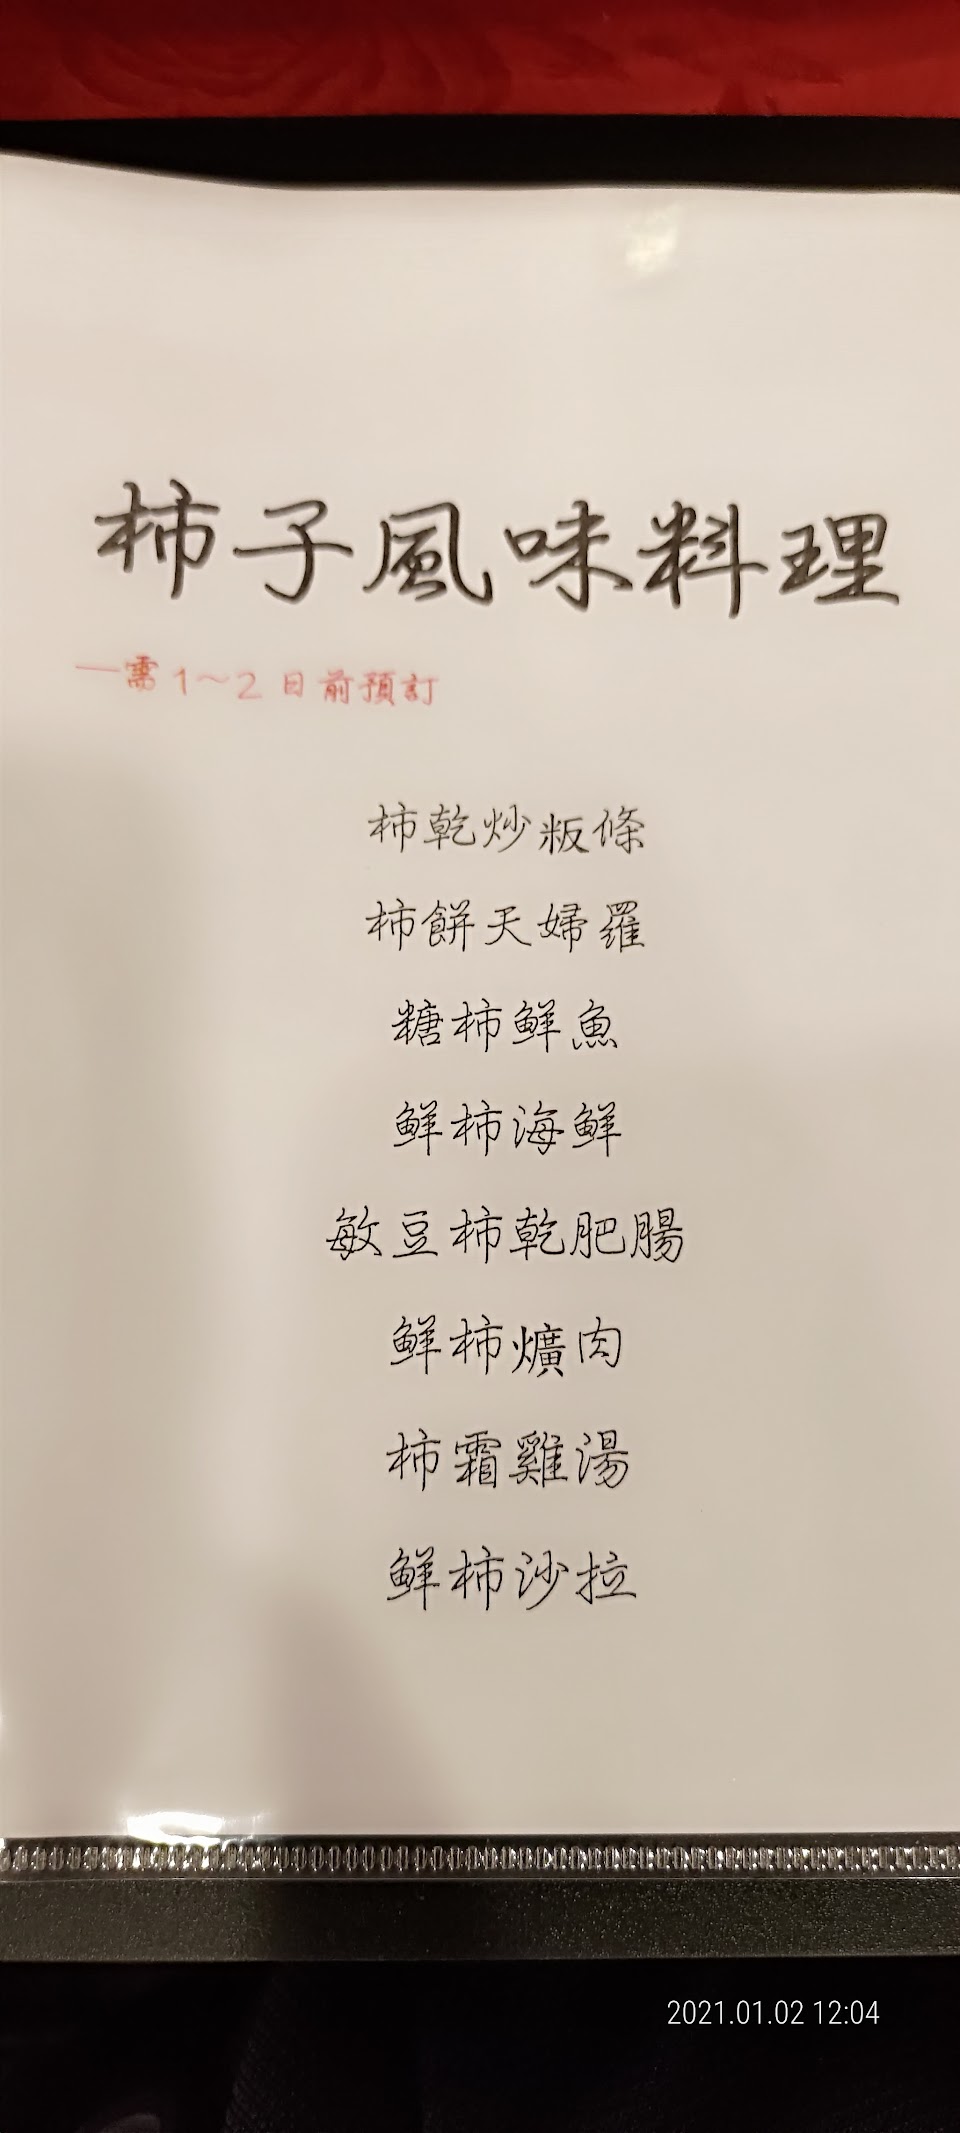 柿子風味料理
一需1～2日前預訂
柿乾炒粄條
柿餅天婦羅
糖柿鮮魚
鮮柿海鮮
敏豆柿乾肥腸
鮮柿爌肉
柿霜雞湯
鮮柿沙拉
2021.01.02 12:04